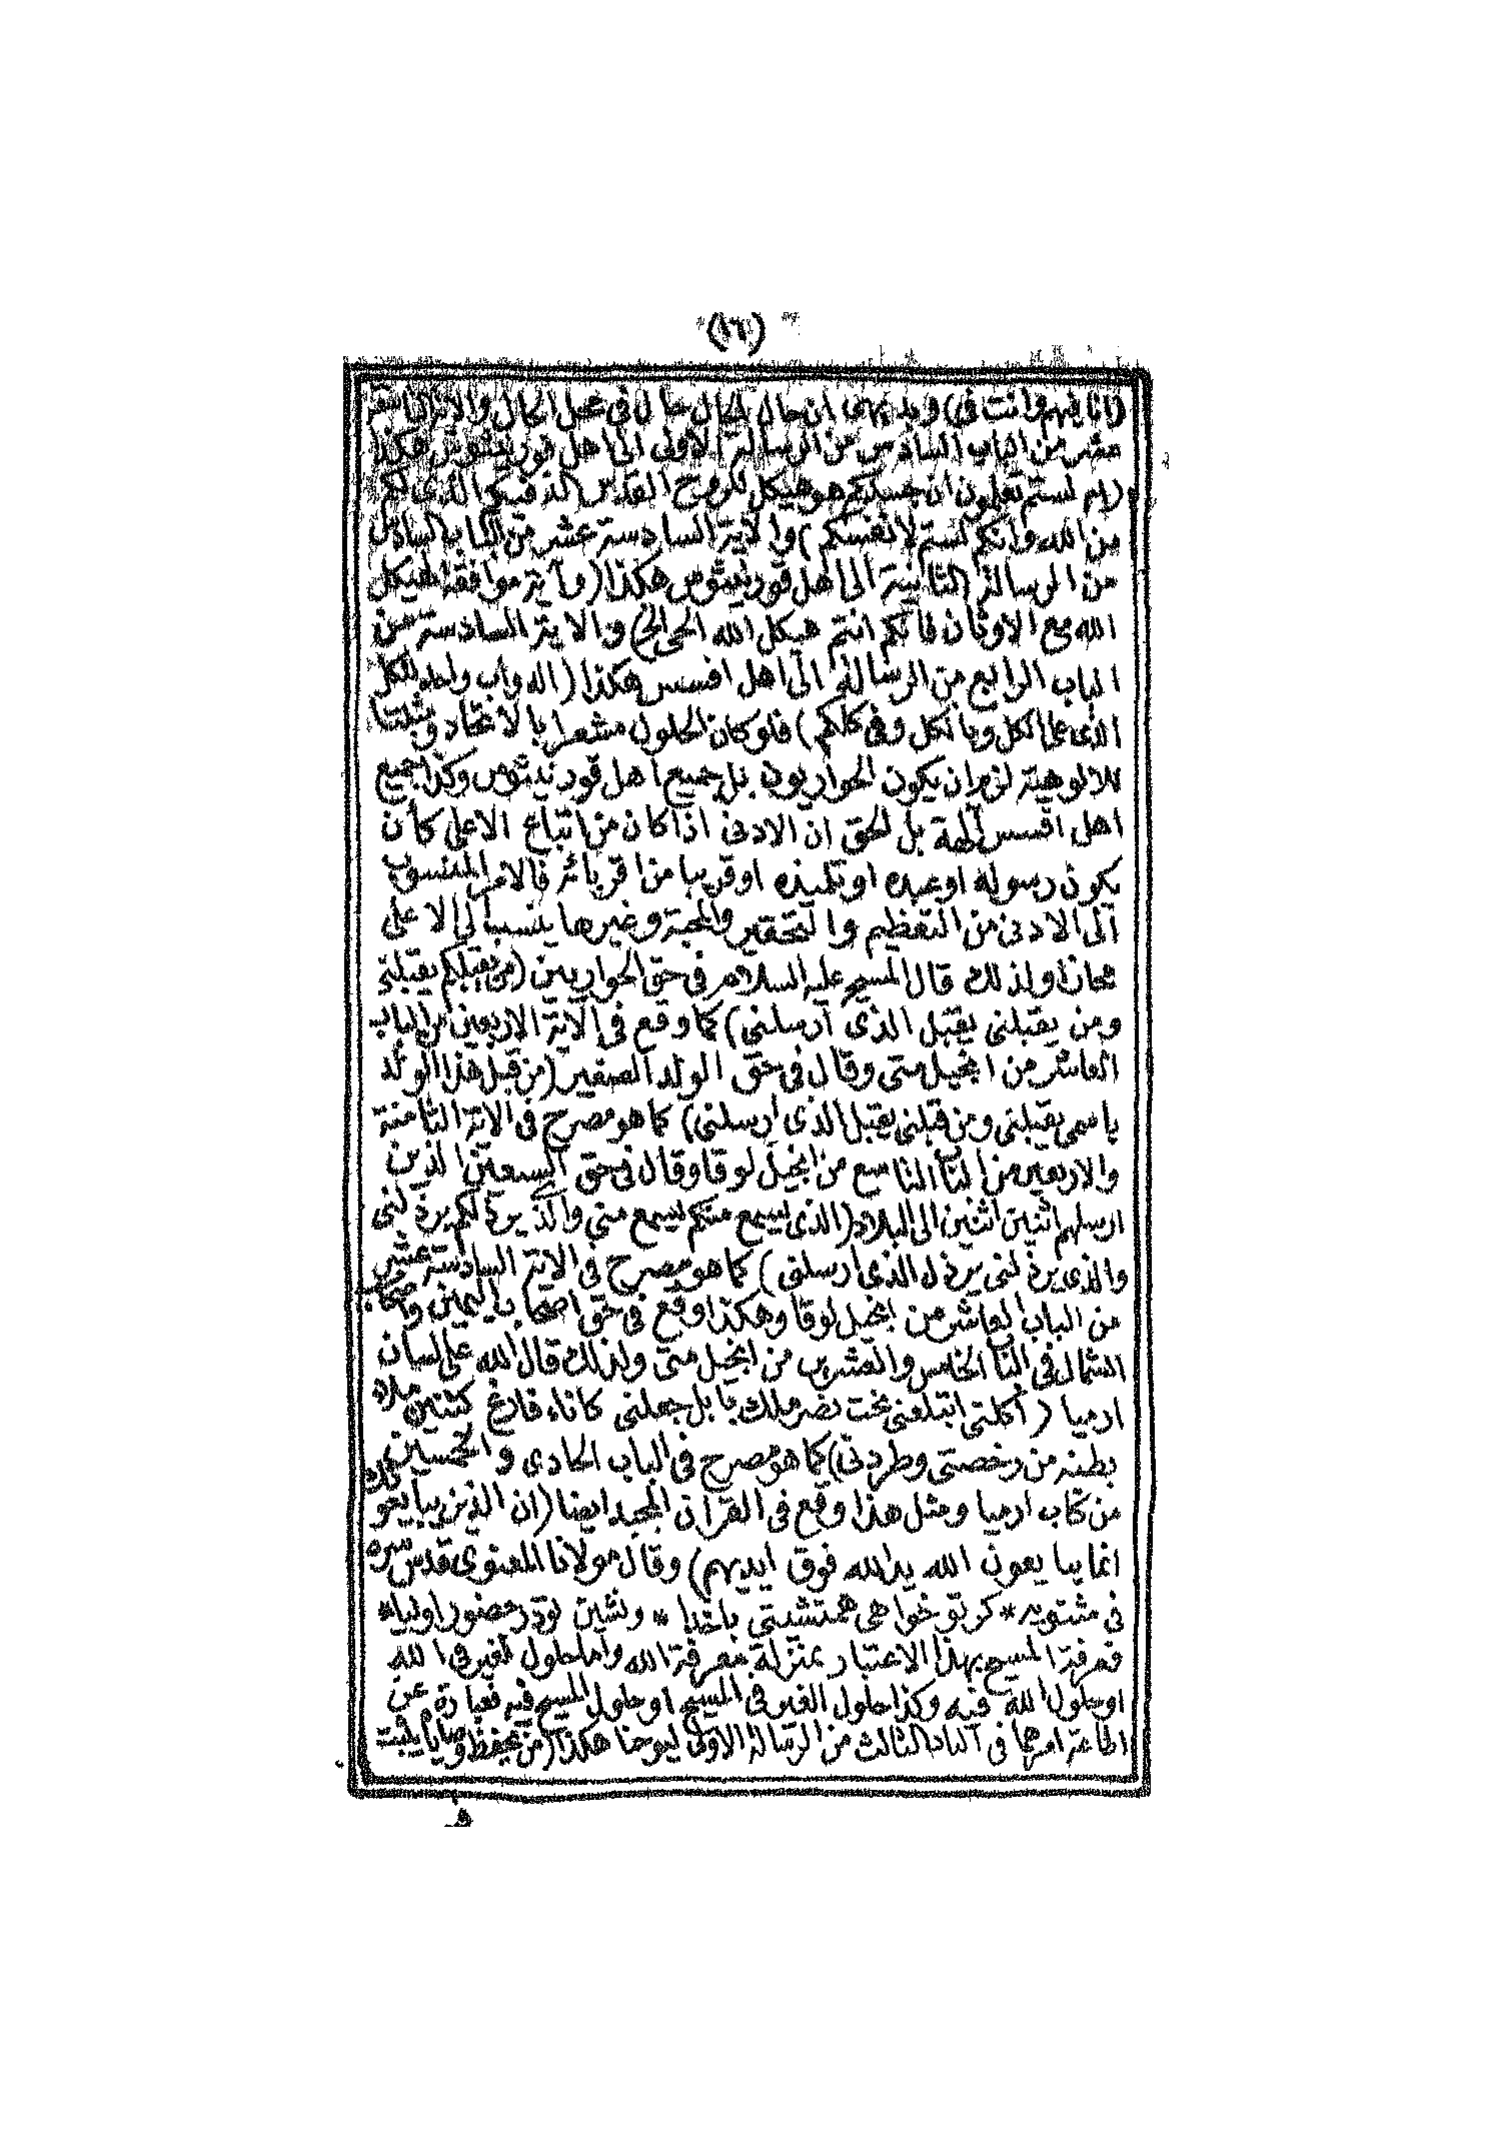 (١٦)
(انا فيهم وانت في) وبديهي ان حال الحال حال في محل الحال والاية التاسعة
عشر من الباب السادس من الرسالة الاولى الى اهل قورنيثوس هكذا
(ام لستم تعلمون ان جسدكم هو هيكل للروح القدس الذي فيكم الذي لكم
من الله وانكم لستم لانفسكم) والاية السادسة عشر من الباب السادس
من الرسالة الثانية الى اهل قورنيثوس هكذا (واية موافقة لهيكل
الله مع الاوثان فانكم انتم هيكل الله الحي الخ) والاية السادسة من
الباب الرابع من الرسالة الى اهل افسس هكذا (اله واب واحد للكل
الذى على الكل وبالكل وفى كلكم) فلو كان الحلول مشعرا بالاتحاد ومثبتا
للالوهية لزم ان يكون الحواريون بل جميع اهل قورنيثوس وكذا جميع
اهل افسس آلهة بل الحق ان الادنى اذا كان من اتباع الاعلى كأن
يكون رسوله او عبده او تلميذه او قريبا من اقربائه فالامر المنسوب
الى الادنى من التعظيم والتحقير والمحبة وغيرها ينسب الى الاعلى
مجازا ولذلك قال المسيح عليه السلام فى حق الحواريين (من يقبلكم يقبلني
ومن يقبلنى يقبل الذى ارسلنى) كما وقع فى الاية الاربعين من الباب
العاشر من انجيل متى وقال فى حق الولد الصغير (من قبل هذا الولد
باسمى يقبلنى ومن قبلنى يقبل الذى ارسلنى) كما هو مصرح فى الاية الثامنة
والاربعين من الباب التاسع من انجيل لوقا وقال فى حق السبعين الذين
ارسلهم اثنين اثنين الى البلاد (الذى يسمع منكم يسمع منى والذى يرذلكم يرذلنى
والذى يرذلنى يرذل الذى ارسلنى) كما هو مصرح فى الاية السادسة عشر
من الباب العاشر من انجيل لوقا وهكذا وقع فى حق اصحاب اليمين واصحاب
الشمال فى الباب الخامس والعشرين من انجيل متى ولذلك قال الله على لسان
ارميا (اكلنى ابتلعنى بخت نصر ملك بابل جعلنى كاناء فارغ كتنين ملاء
بطنه من رخصتى وطردنى) كما هو مصرح فى الباب الحادى والخمسين
من كتاب ارميا ومثل هذا وقع فى القرآن المجيد ايضا (ان الذين يبايعونك
انما يبايعون الله يد الله فوق ايديهم) وقال مولانا المعنوى قدس سره
فى مثنويه * كر تو خواهى همنشينى باخدا * ونشين تو در حضور اولياء *
فمعرفة المسيح بهذا الاعتبار بمنزلة معرفة الله واما حلول الغير فى الله
او حلول الله فيه وكذا حلول الغير فى المسيح او حلول المسيح فيه فعبارة عن
اطاعة امرهما فى الباب الثالث من الرسالة الاولى ليوحنا هكذا (من يحفظ وصاياه يثبت